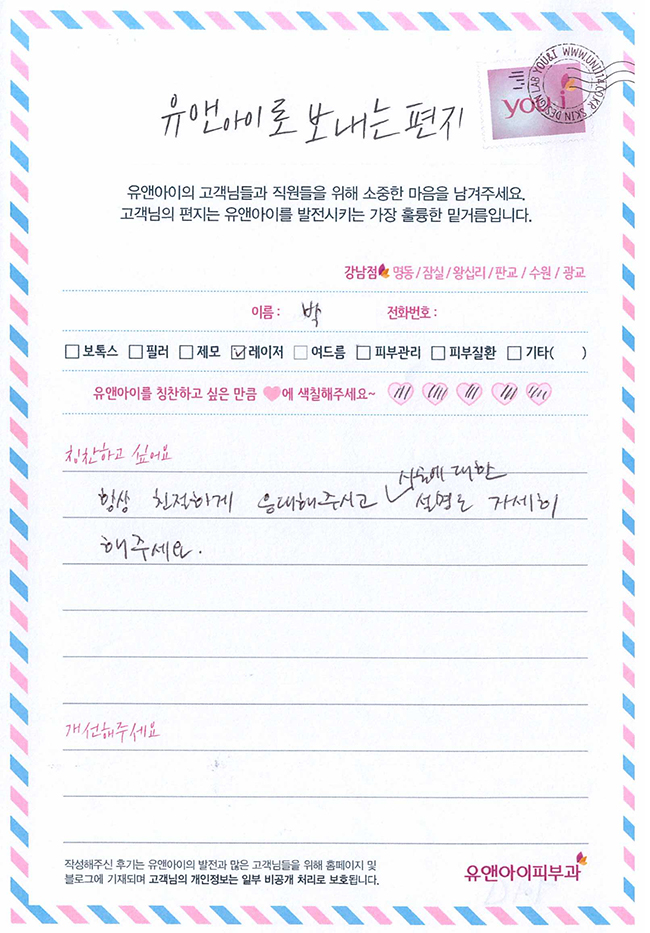 유앤아이로 보내는 편지
you&i
LAB YOU&I WWW.UNI114.CO.KR SKIN DESIGN
유앤아이의 고객님들과 직원들을 위해 소중한 마음을 남겨주세요.
고객님의 편지는 유앤아이를 발전시키는 가장 훌륭한 밑거름입니다.
강남점 명동 / 잠실 / 왕십리 / 판교 / 수원 / 광교
이름 : 박 전화번호 :
보톡스 필러 제모 레이저 여드름 피부관리 피부질환 기타( )
유앤아이를 칭찬하고 싶은 만큼 에 색칠해주세요~
칭찬하고 싶어요
시술에 대한
항상 친절하게 응대해주시고 설명도 자세히
해주세요.
개선해주세요
작성해주신 후기는 유앤아이의 발전과 많은 고객님들을 위해 홈페이지 및
블로그에 기재되며 고객님의 개인정보는 일부 비공개 처리로 보호됩니다.
유앤아이피부과